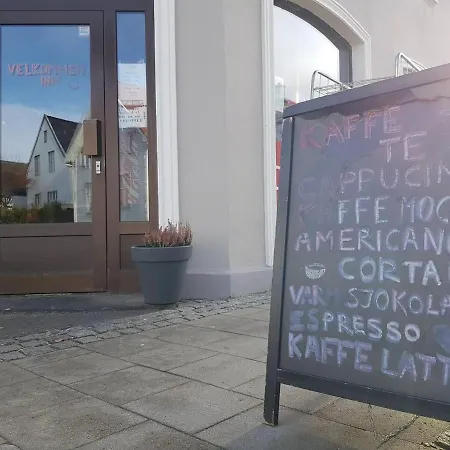 VELKOMMEN
INN
KAFFE
TE
CAPPUCIN
KAFFE MOC
AMERICANO
CORTA
VARM SJOKOLA
ESPRESSO
KAFFE LATT